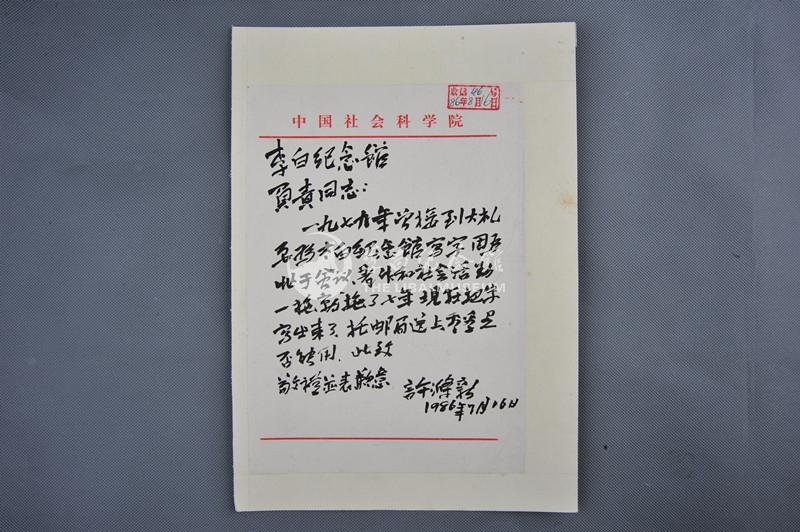 收信 46 号
86年8月16日
中国社会科学院
李白纪念馆
负责同志：
一九七九年曾接到大札
要我为太白纪念馆写字因
忙于会议、著作和社会活动
一拖就拖了七年现在把字
写出来了托邮局送上不知是
否能用，此致
敬礼並表歉意
許滌新
1986年7月16日
THE LIBAI MUSEUM